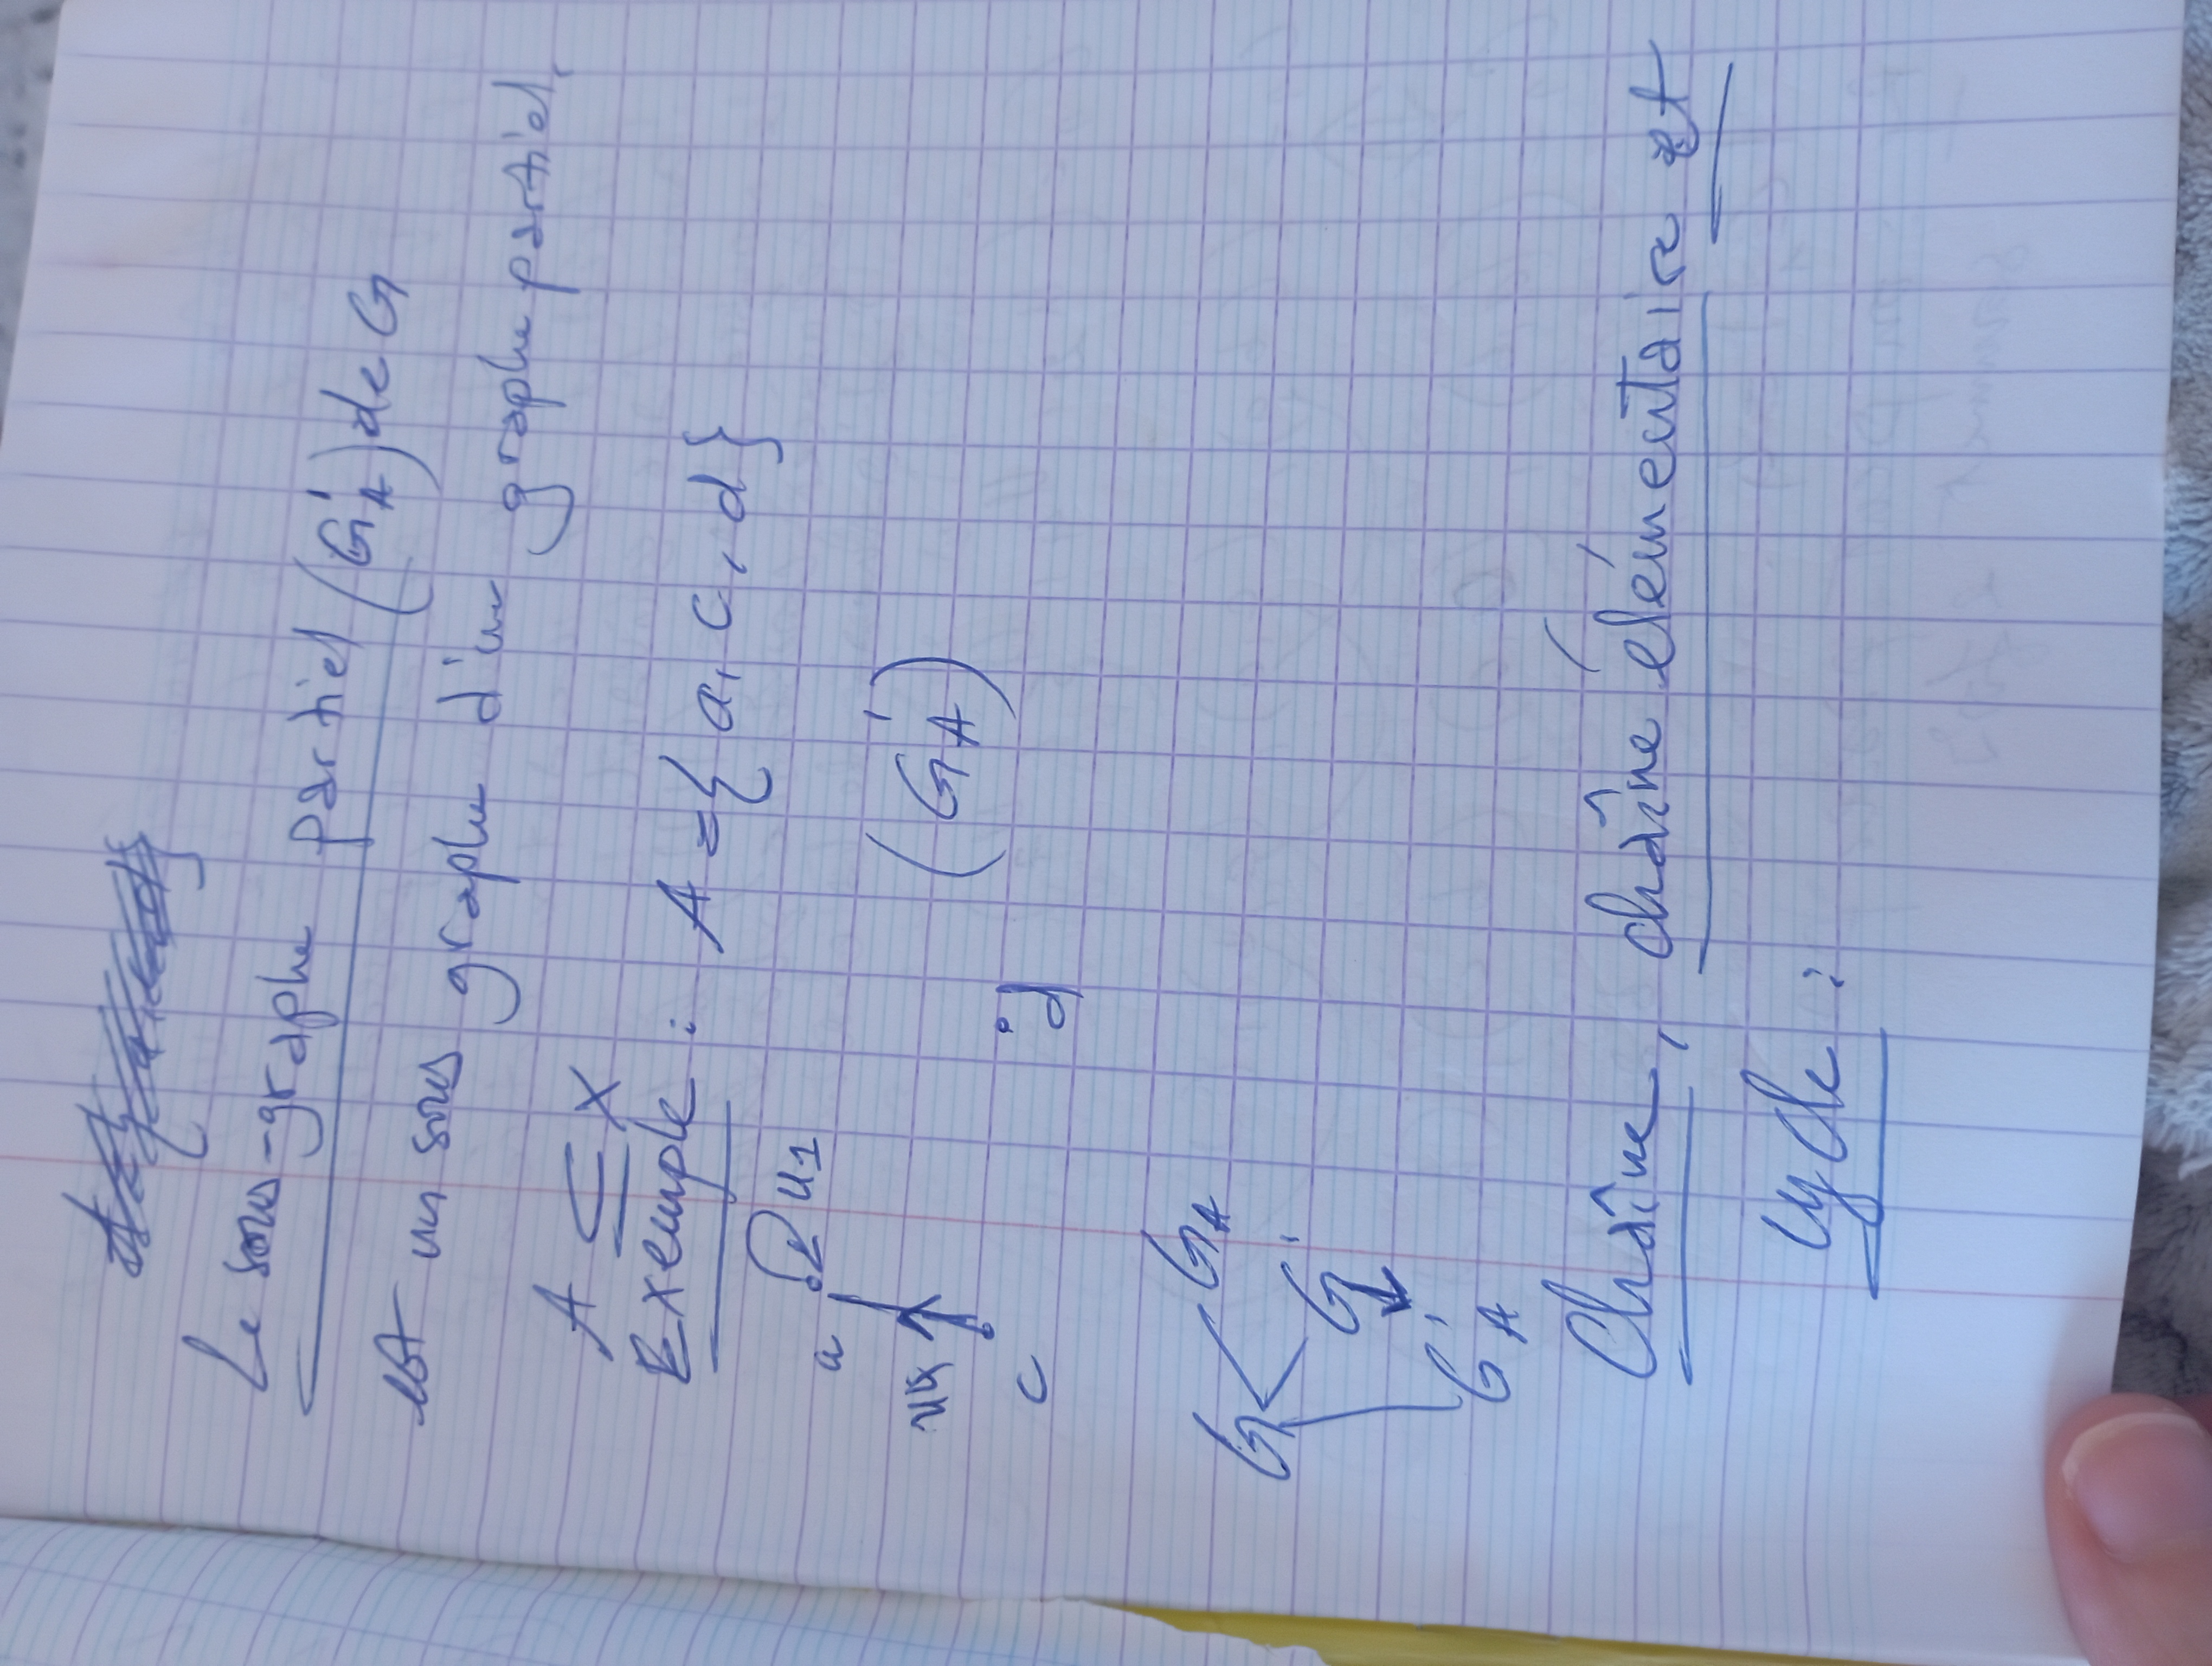 Le sous-graphe partiel (G'A) de G
est un sous graphe d'un graphe partiel.
A ⊆ X
Exemple : A = { a, c, d }
u1
a
u4
(G'A)
c
d
GA
G
G'
G'A
Chaîne, chaîne élémentaire et
cycle :